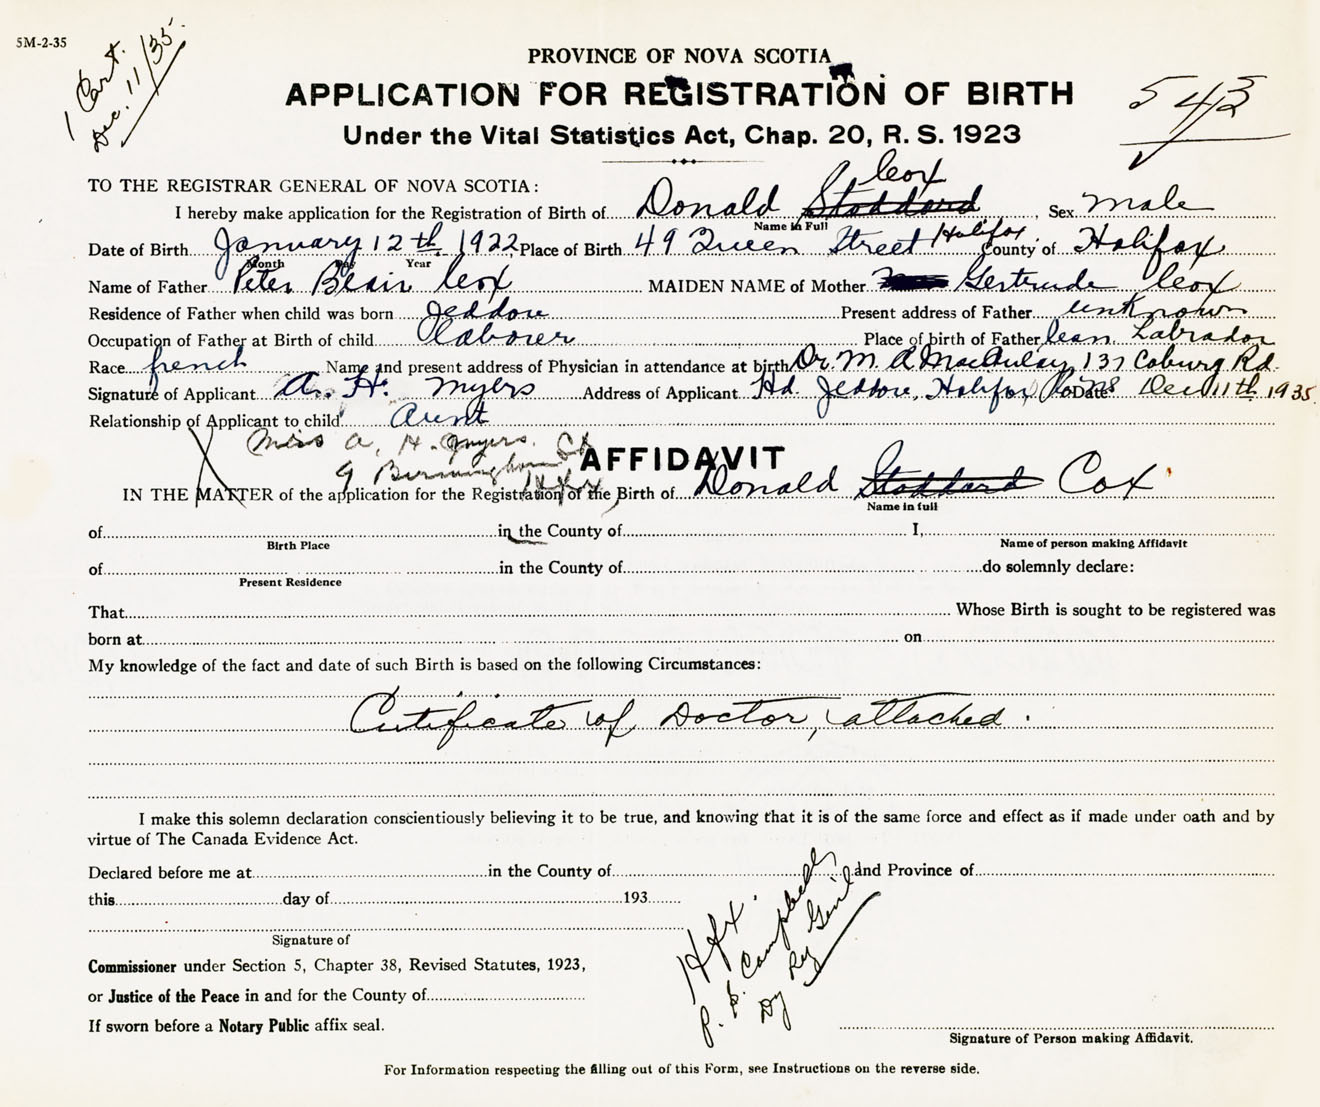 5M-2-35
1 Cert.
Dec. 11/35
PROVINCE OF NOVA SCOTIA
APPLICATION FOR REGISTRATION OF BIRTH
543
Under the Vital Statistics Act, Chap. 20, R. S. 1923
TO THE REGISTRAR GENERAL OF NOVA SCOTIA:
Cox
I hereby make application for the Registration of Birth of Donald Stoddard Sex Male
Name in Full
Date of Birth January 12th 1922 Place of Birth 49 Queen Street Halifax County of Halifax
Month Day Year
Name of Father Peter Blair Cox MAIDEN NAME of Mother Gertrude Cox
Residence of Father when child was born Jeddore Present address of Father unknown
Occupation of Father at Birth of child laborer Place of birth of Father Labrador
Race french Name and present address of Physician in attendance at birth Dr. M. A MacAulay, 137 Coburg Rd.
Signature of Applicant A. H. Myers Address of Applicant Hd. Jeddore, Halifax Co. N.S Date Dec 11th 1935
Relationship of Applicant to child Aunt
Miss A. H. Myers.
9 Birmingham St
Hfx
AFFIDAVIT
IN THE MATTER of the application for the Registration of the Birth of Donald Stoddard Cox
Name in full
of in the County of I,
Birth Place Name of person making Affidavit
of in the County of do solemnly declare:
Present Residence
That Whose Birth is sought to be registered was
born at on
My knowledge of the fact and date of such Birth is based on the following Circumstances:
Certificate of Doctor, attached.
I make this solemn declaration conscientiously believing it to be true, and knowing that it is of the same force and effect as if made under oath and by
virtue of The Canada Evidence Act.
Declared before me at in the County of and Province of
this day of 193
Signature of
Hfx.
P. S. Campbell
Dy Reg Genl
Commissioner under Section 5, Chapter 38, Revised Statutes, 1923,
or Justice of the Peace in and for the County of
If sworn before a Notary Public affix seal.
Signature of Person making Affidavit.
For Information respecting the filling out of this Form, see Instructions on the reverse side.